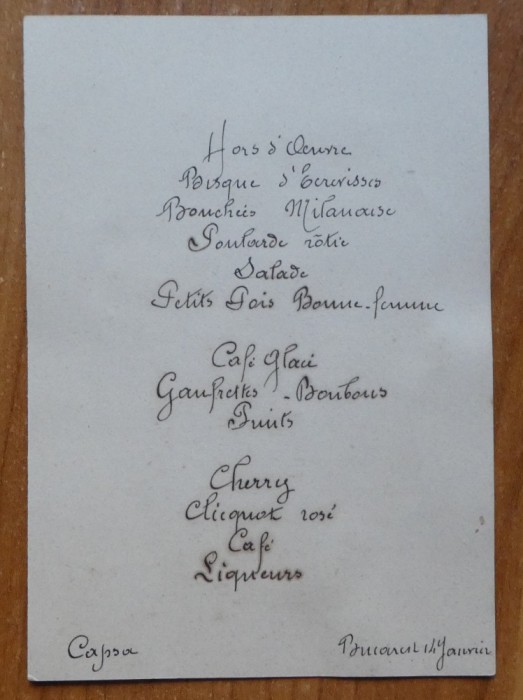 Hors d'Oeuvre
Bisque d'Ecrevisses
Bouchées Milanaise
Poularde rôtie
Salade
Petits Pois Bonne-femme
Café Glacé
Gaufrettes - Bonbons
Fruits
Cherry
Clicquot rosé
Café
Liqueurs
Capsa
Bucarest 14 Janvier